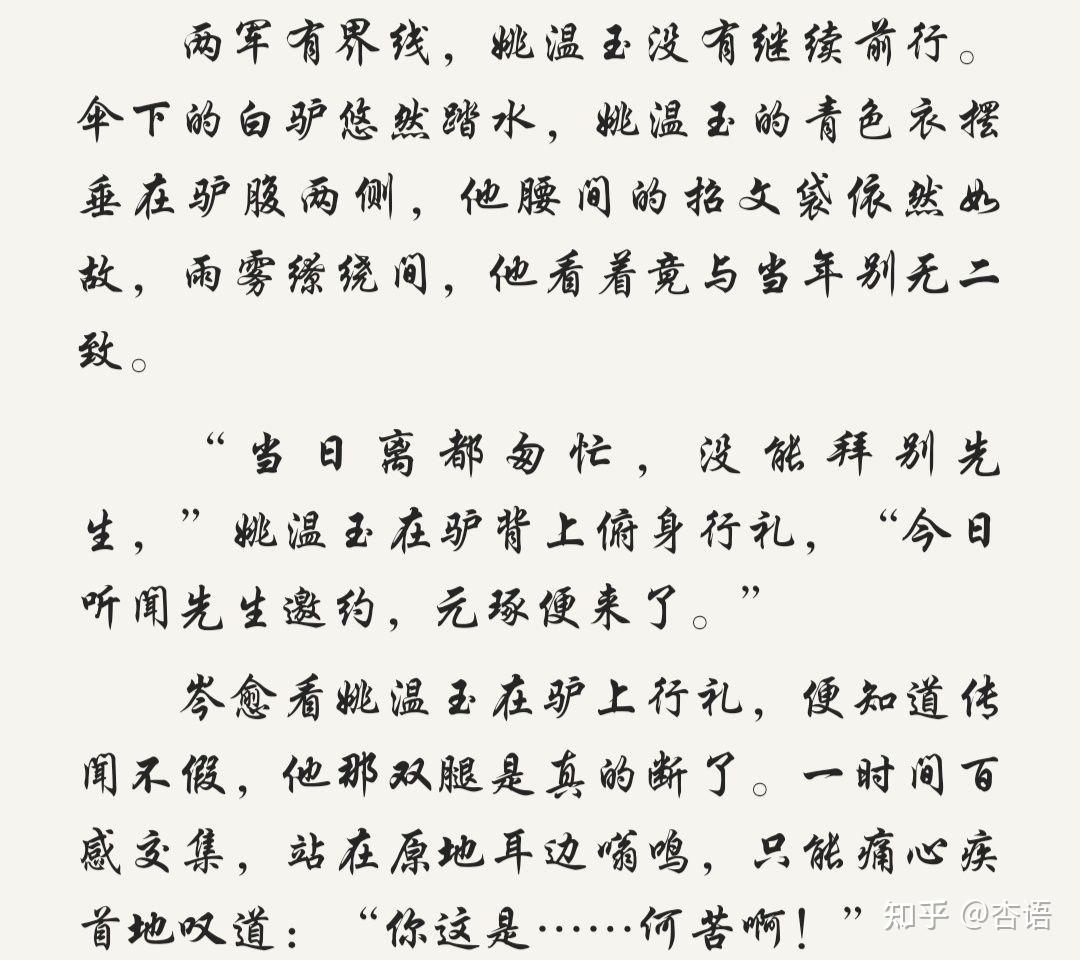 两军有界线，姚温玉没有继续前行。
伞下的白驴悠然踏水，姚温玉的青色衣摆
垂在驴腹两侧，他腰间的招文袋依然如
故，雨雾缭绕间，他看着竟与当年别无二
致。
“当日离都匆忙，没能拜别先
生，”姚温玉在驴背上俯身行礼，“今日
听闻先生邀约，元琢便来了。”
岑愈看姚温玉在驴上行礼，便知道传
闻不假，他那双腿是真的断了。一时间百
感交集，站在原地耳边嗡鸣，只能痛心疾
首地叹道：“你这是……何苦啊！”
知乎 @杏语